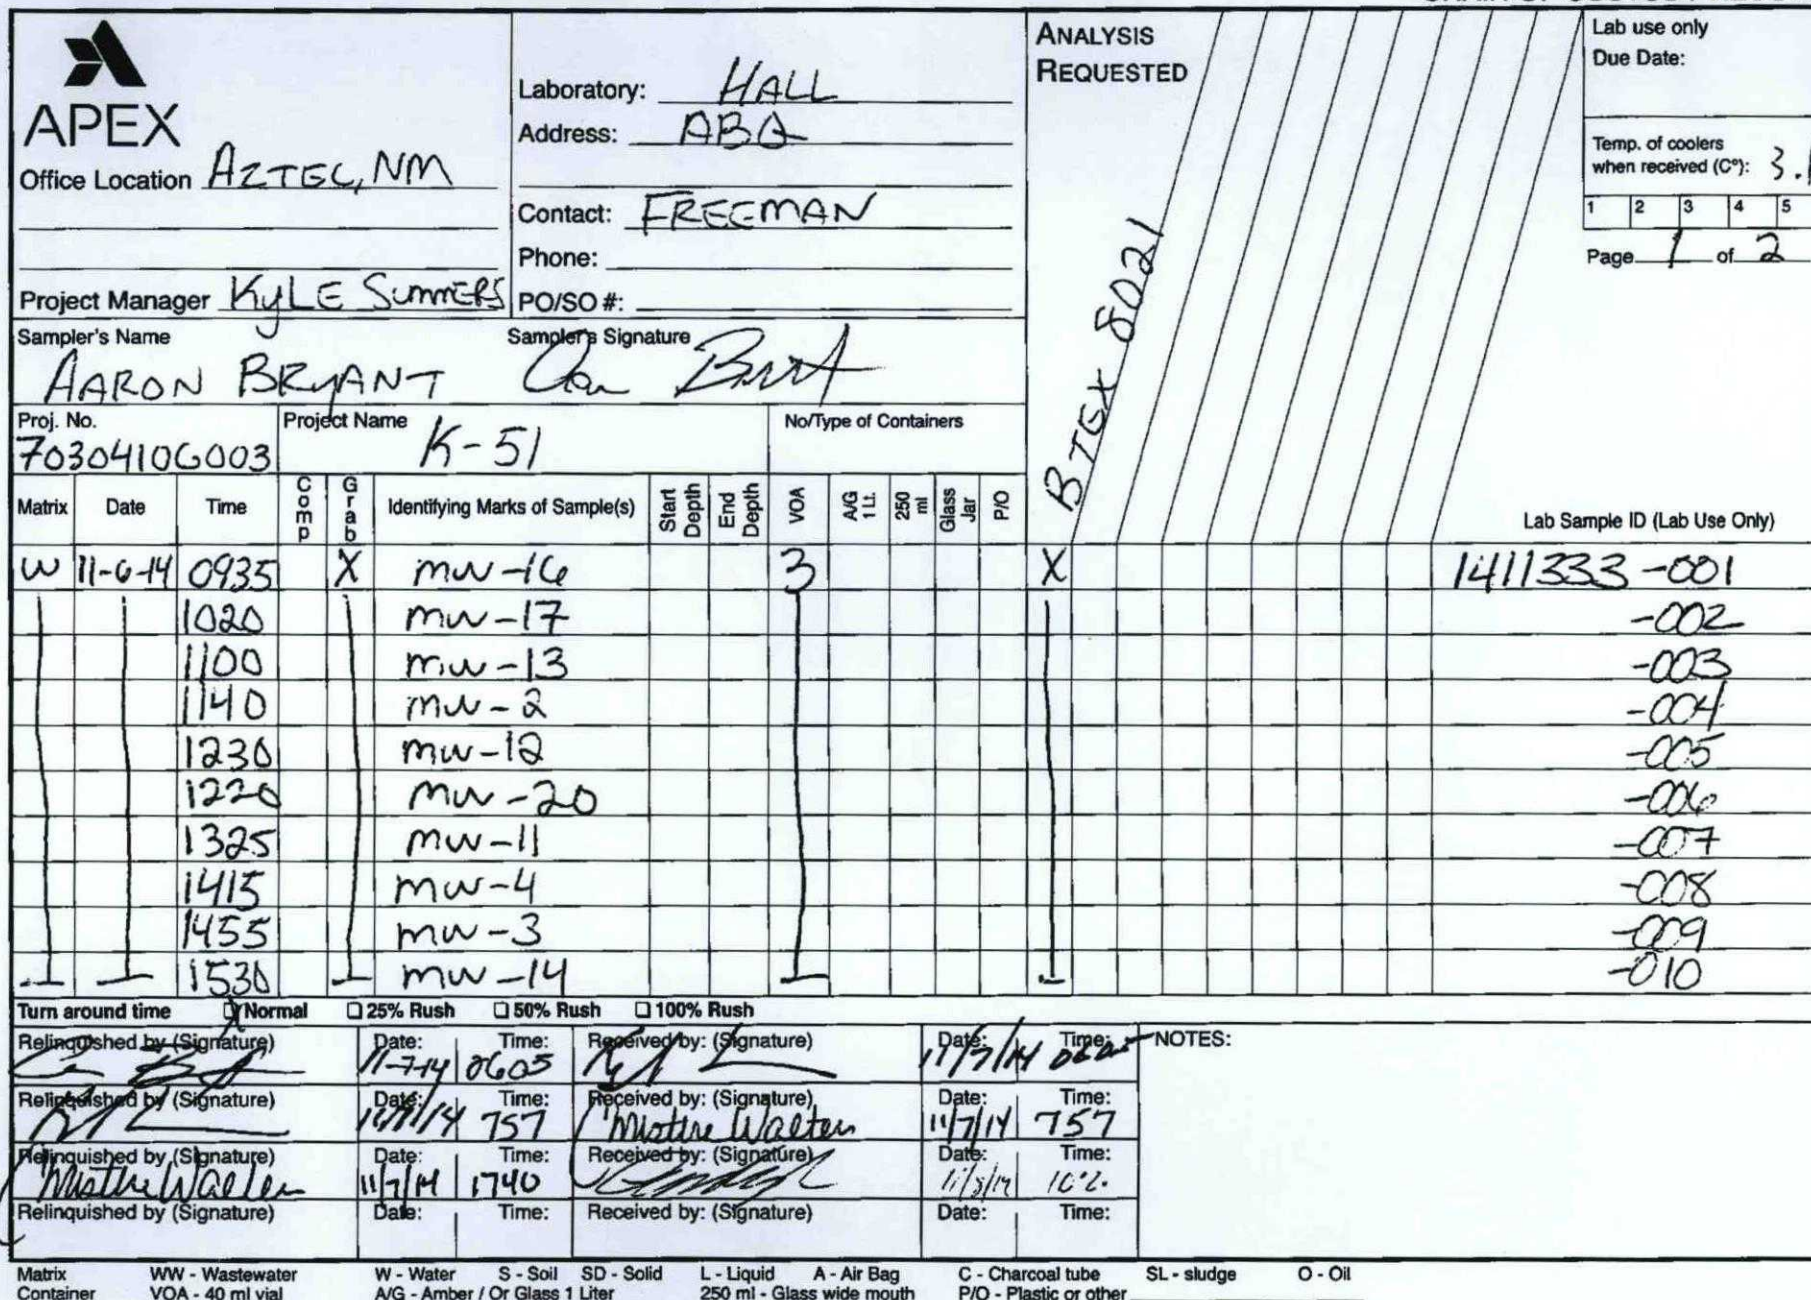 APEX
Office Location AZTEC, NM
Project Manager KYLE SUMMERS
Laboratory: HALL
Address: ABQ
Contact: FREEMAN
Phone:
PO/SO #:
ANALYSIS
REQUESTED
BTEX 8021
Lab use only
Due Date:
Temp. of coolers
when received (C°): 3.
1 2 3 4 5
Page 1 of 2
Sampler's Name
AARON BRYANT
Sampler's Signature
Proj. No.
7030410G003
Project Name
K-51
No/Type of Containers
Matrix Date Time Comp Grab Identifying Marks of Sample(s) Start Depth End Depth VOA A/G 1 Lt. 250 ml Glass Jar P/O Lab Sample ID (Lab Use Only)
W 11-6-14 0935 X MW-16 3 X 1411333-001
1020 MW-17 -002
1100 MW-13 -003
1140 MW-2 -004
1230 MW-12 -005
1220 MW-20 -006
1325 MW-11 -007
1415 MW-4 -008
1455 MW-3 -009
1530 MW-14 -010
Turn around time X Normal 25% Rush 50% Rush 100% Rush
Relinquished by (Signature) Date: 11-7-14 Time: 0605 Received by: (Signature) Date: 11/7/14 Time: NOTES:
Relinquished by (Signature) Date: 11/7/14 Time: 757 Received by: (Signature) Mistie Walters Date: 11/7/14 Time: 757
Relinquished by (Signature) Mistie Walters Date: 11/7/14 Time: 1740 Received by: (Signature) Date: Time:
Relinquished by (Signature) Date: Time: Received by: (Signature) Date: Time:
Matrix WW - Wastewater W - Water S - Soil SD - Solid L - Liquid A - Air Bag C - Charcoal tube SL - sludge O - Oil
Container VOA - 40 ml vial A/G - Amber / Or Glass 1 Liter 250 ml - Glass wide mouth P/O - Plastic or other